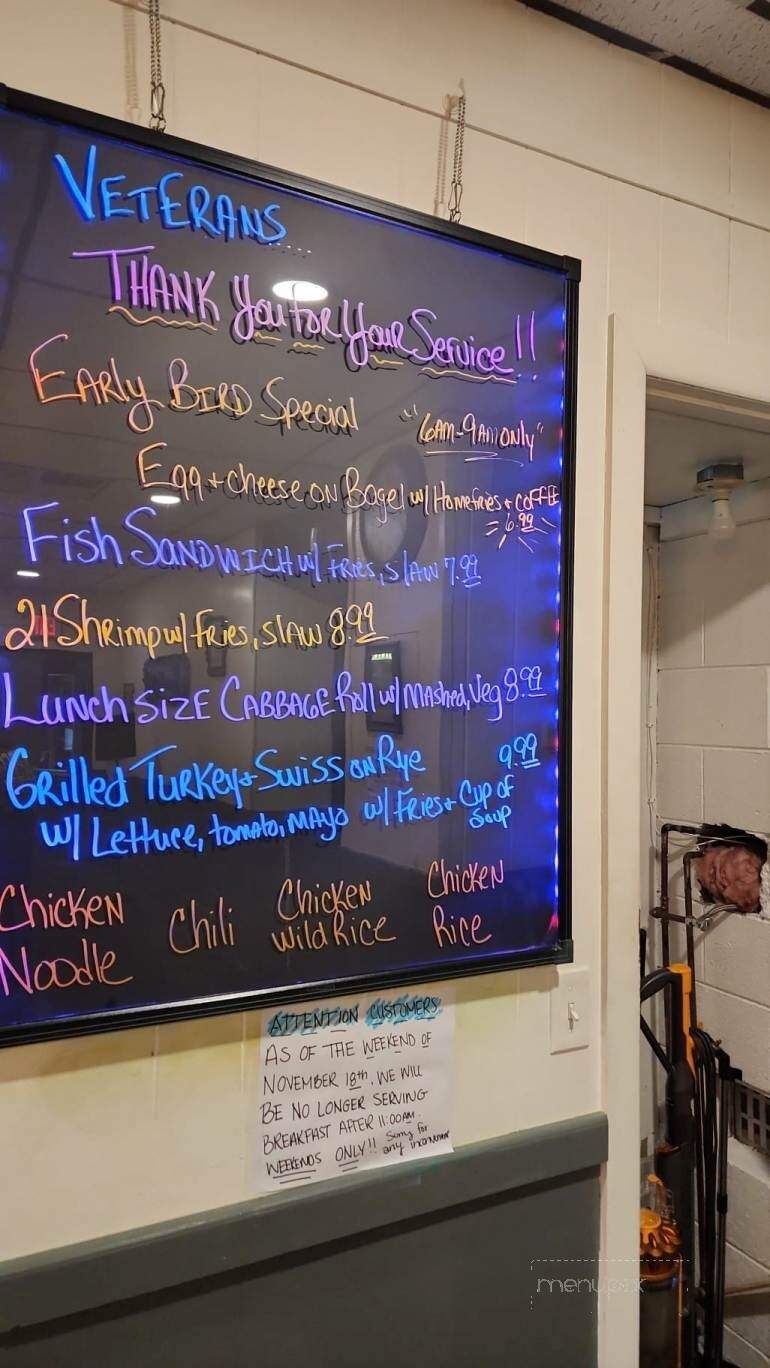 VETERANS.....
THANK You For Your Service!!
EARly BIRD Special "6AM-9AM ONLY"
Egg + cheese ON Bagel w/ Homefries + COFFEE
6.99
Fish SANDWICH w/ Fries, slAW 7.99
21 Shrimp w/ Fries, slAW 8.99
Lunch SIZE CABBAGE Roll w/ MAshed, Veg 8.99
Grilled Turkey + Swiss ON Rye 9.99
w/ Lettuce, tomato, MAyo w/ Fries + Cup of
Soup
Chicken Noodle
Chili
Chicken Wild Rice
Chicken Rice
ATTENTION CUSTOMERS
AS OF THE WEEKEND OF
NOVEMBER 18th, WE WILL
BE NO LONGER SERVING
BREAKFAST AFTER 11:00AM.
WEEKENDS ONLY!! Sorry for
any inconvenience
menupix